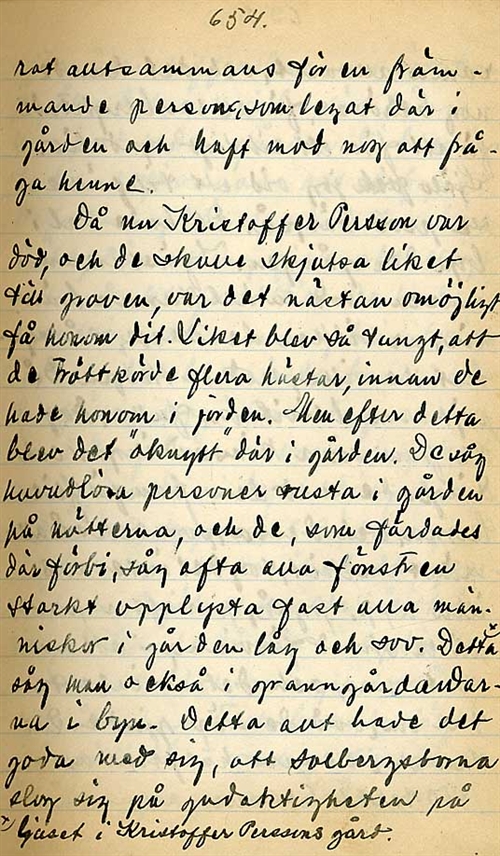 654.
rat alltsammans för en främ-
mande person, som legat där i
gården och haft mod nog att frå-
ga henne.
Då nu Kristoffer Persson var
död, och de skulle skjutsa liket
till graven, var det nästan omöjligt
få honom dit. Liket blev så tungt, att
de tröttkörde flera hästar, innan de
hade honom i jorden. Men efter detta
blev det "oknytt" där i gården. De såg
huvudlösa personer rusta i gården
på nätterna, och de, som färdades
där förbi, såg ofta alla fönstren
starkt upplysta fast alla män-
niskor i gården låg och sov. Detta x
såg man också i granngårdarna
i byn. Detta allt hade det
goda med sig, att solbergsborna
slog sig på gudaktigheten så
x) ljuset i Kristoffer Perssons gård.